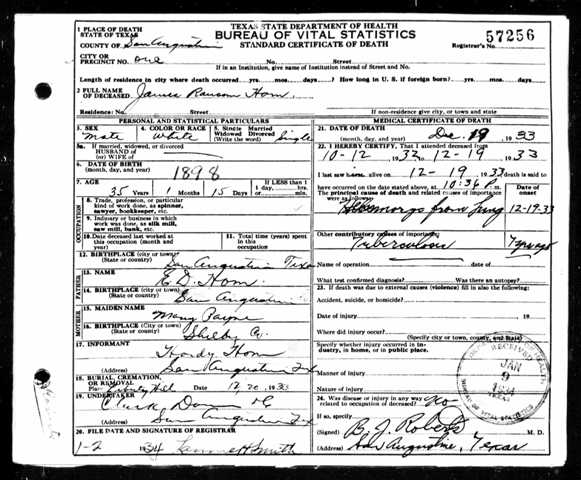 TEXAS STATE DEPARTMENT OF HEALTH
BUREAU OF VITAL STATISTICS
STANDARD CERTIFICATE OF DEATH
57256
Registrar's No.
1 PLACE OF DEATH
STATE OF TEXAS
COUNTY OF San Augustine
CITY OR
PRECINCT NO. one Street
If in an Institution, give name of Institution instead of Street and No.
Length of residence in city where death occurred yrs. mos. days. How long in U. S. if foreign born? yrs. mos. days.
2 FULL NAME
OF DECEASED James Ransom Horn
Residence: No. Street
If non-residence give city, or town and state
PERSONAL AND STATISTICAL PARTICULARS
3. SEX
Male
4. COLOR OR RACE
White
5. Single Married
Widowed Divorced
(Write the word) Single
5a. If married, widowed, or divorced
HUSBAND OF
(or) WIFE OF
6. DATE OF BIRTH
(month, day, and year) 1898
7. AGE
35 Years 1 Months 15 Days
If LESS than 1
day, hrs.
or min.
OCCUPATION
8. Trade, profession, or particular
kind of work done, as spinner,
sawyer, bookkeeper, etc.
9. Industry or business in which
work was done, as silk mill,
saw mill, bank, etc.
10. Date deceased last worked at
this occupation (month and
year)
11. Total time (years) spent
in this occupation
12. BIRTHPLACE (City or town)
(State or county) San Augustine Texas
FATHER
13. NAME
E. D. Horn
14. BIRTHPLACE (City or town)
(State or county) San Augustine
MOTHER
15. MAIDEN NAME
Mary Payne
16. BIRTHPLACE (City or town)
(State or county) Shelby Co.
17. INFORMANT
Horn
(Address) San Augustine Tex
18. BURIAL, CREMATION,
OR REMOVAL
Place Liberty Hill 12 20 1933
19. UNDERTAKER
Clark
(Address) San Augustine Tex
20. FILE DATE AND SIGNATURE OF REGISTRAR
1-2 1934 Smith
MEDICAL CERTIFICATE OF DEATH
21. DATE OF DEATH
(month, day, and year) Dec 19 1933
22. I HEREBY CERTIFY, That I attended deceased from
10-12 1932 12-19 1933
I last saw alive on 12 - 19 1933 death is said to
have occurred on the date stated above, at 10:30 P. m.
The principal cause of death and related causes of importance
were as follows:
Date of
onset
from Lung 12-19-33
Other contributory causes of importance:
Tuberculosis
Name of operation
What test confirmed diagnosis? Was there an autopsy?
23. If death was due to external causes (violence) fill in also the following
Accident, suicide, or homicide?
Date of injury 19
Where did injury occur?
(Specify city or town, county, and State)
Specify whether injury occurred in in-
dustry, in home, or in public place.
Manner of injury
Nature of injury
24. Was disease or injury in any way
related to occupation of deceased? No
If so, specify
(Signed) B. J. Roberts M. D.
(Address) San Augustine, Texas
JAN
9
1934
TEXAS
BUREAU OF VITAL STATISTICS